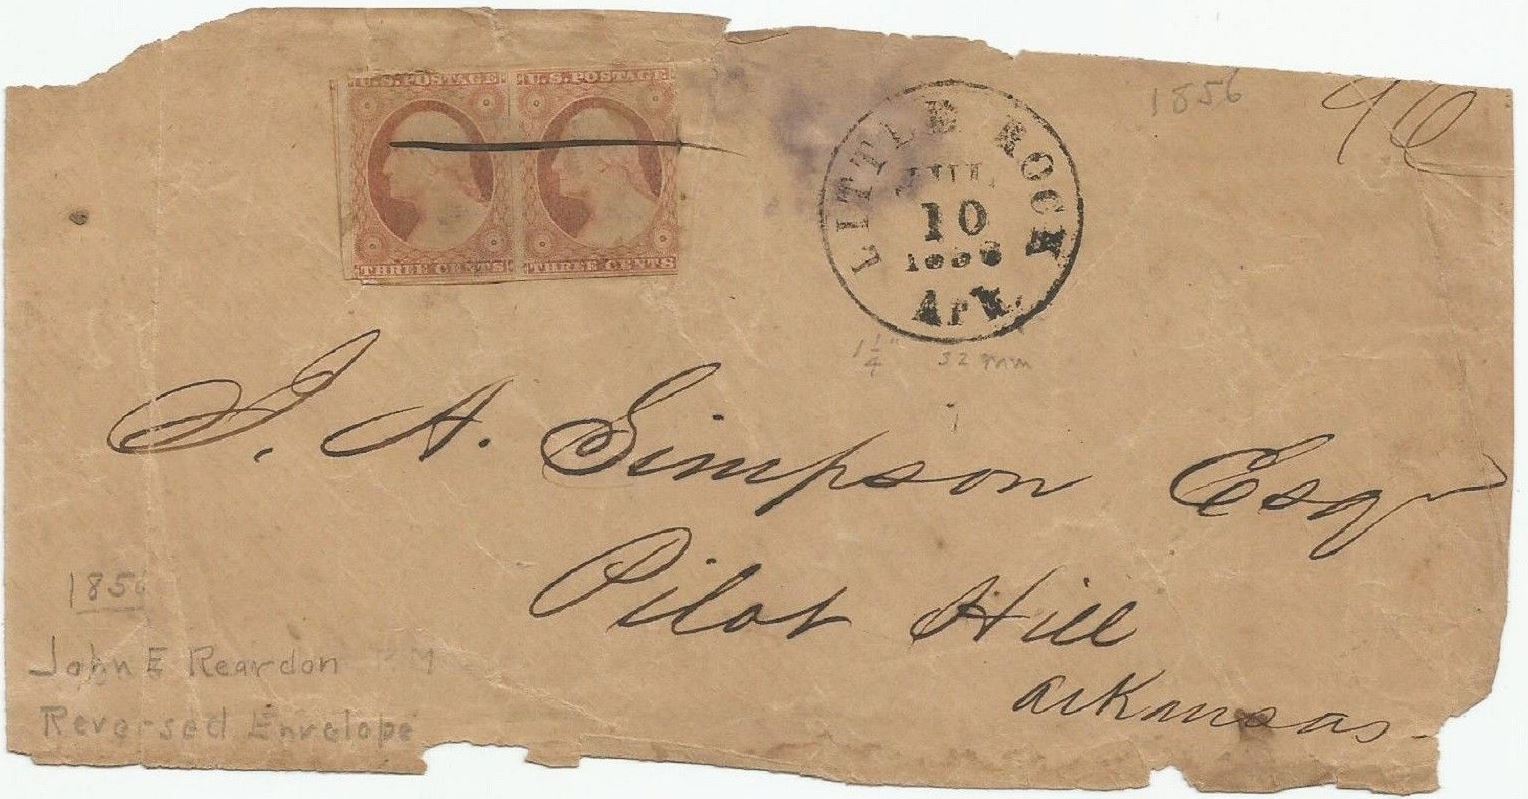 U.S. POSTAGE U.S. POSTAGE
THREE CENTS THREE CENTS
LITTLE ROCK
JUL
10
1856
Ark.
1856
1 1/4" 32 mm
J. A. Simpson Esqr
Pilot Hill
Arkansas
1856
John E Reardon PM
Reversed Envelope